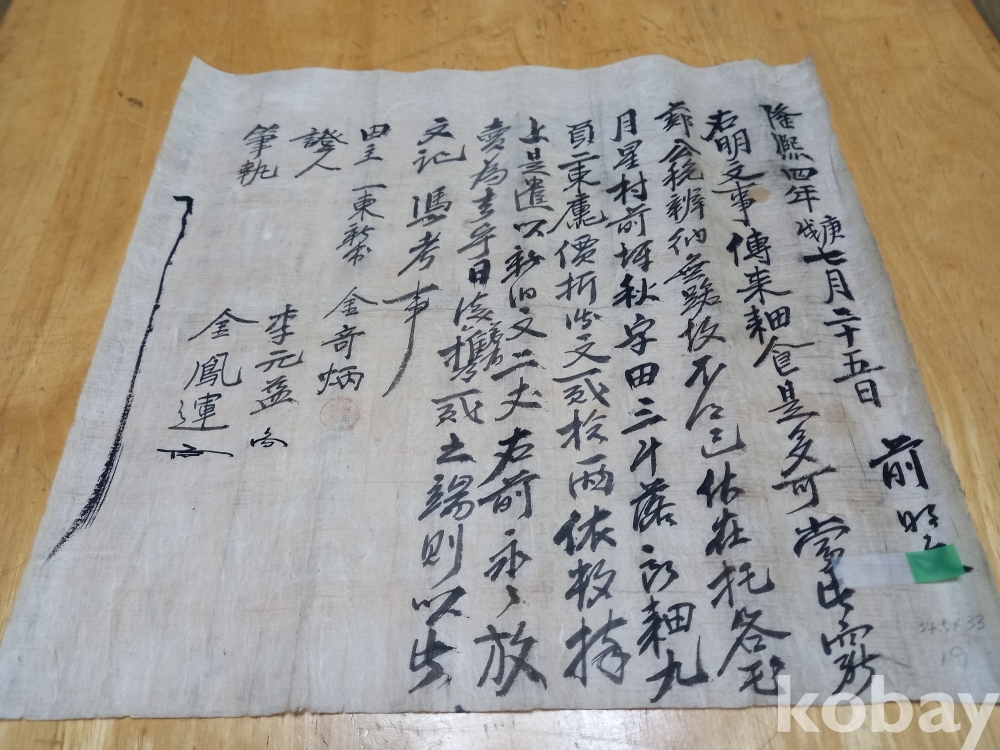 隆熙四年庚戌七月二十五日 前明
右明文事傳來耕食是多可當此窮
節公稅辨納無路故不得已伏在
月星村前坪秋字田三斗落 耕九
負 東 價折 文 拾兩依數捧
上是遣以新旧文二丈右前永永放
賣為去乎日後 之端則以此
文記憑考事
田主 東 金奇炳
證人 李元益
筆執 金鳳運
34.5×33
19
kobay